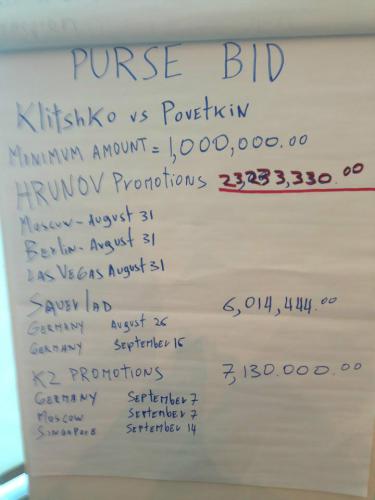 PURSE BID
Klitshko vs Povetkin
Minimum Amount = 1,000,000.00
HRUNOV Promotions 23,233,330.00
Moscow - August 31
Berlin - August 31
Las Vegas August 31
Sauerlad 6,014,444.00
Germany August 26
Germany September 16
K2 PROMOTIONS 7,130.000.00
Germany September 7
Moscow September 7
Singapore September 14